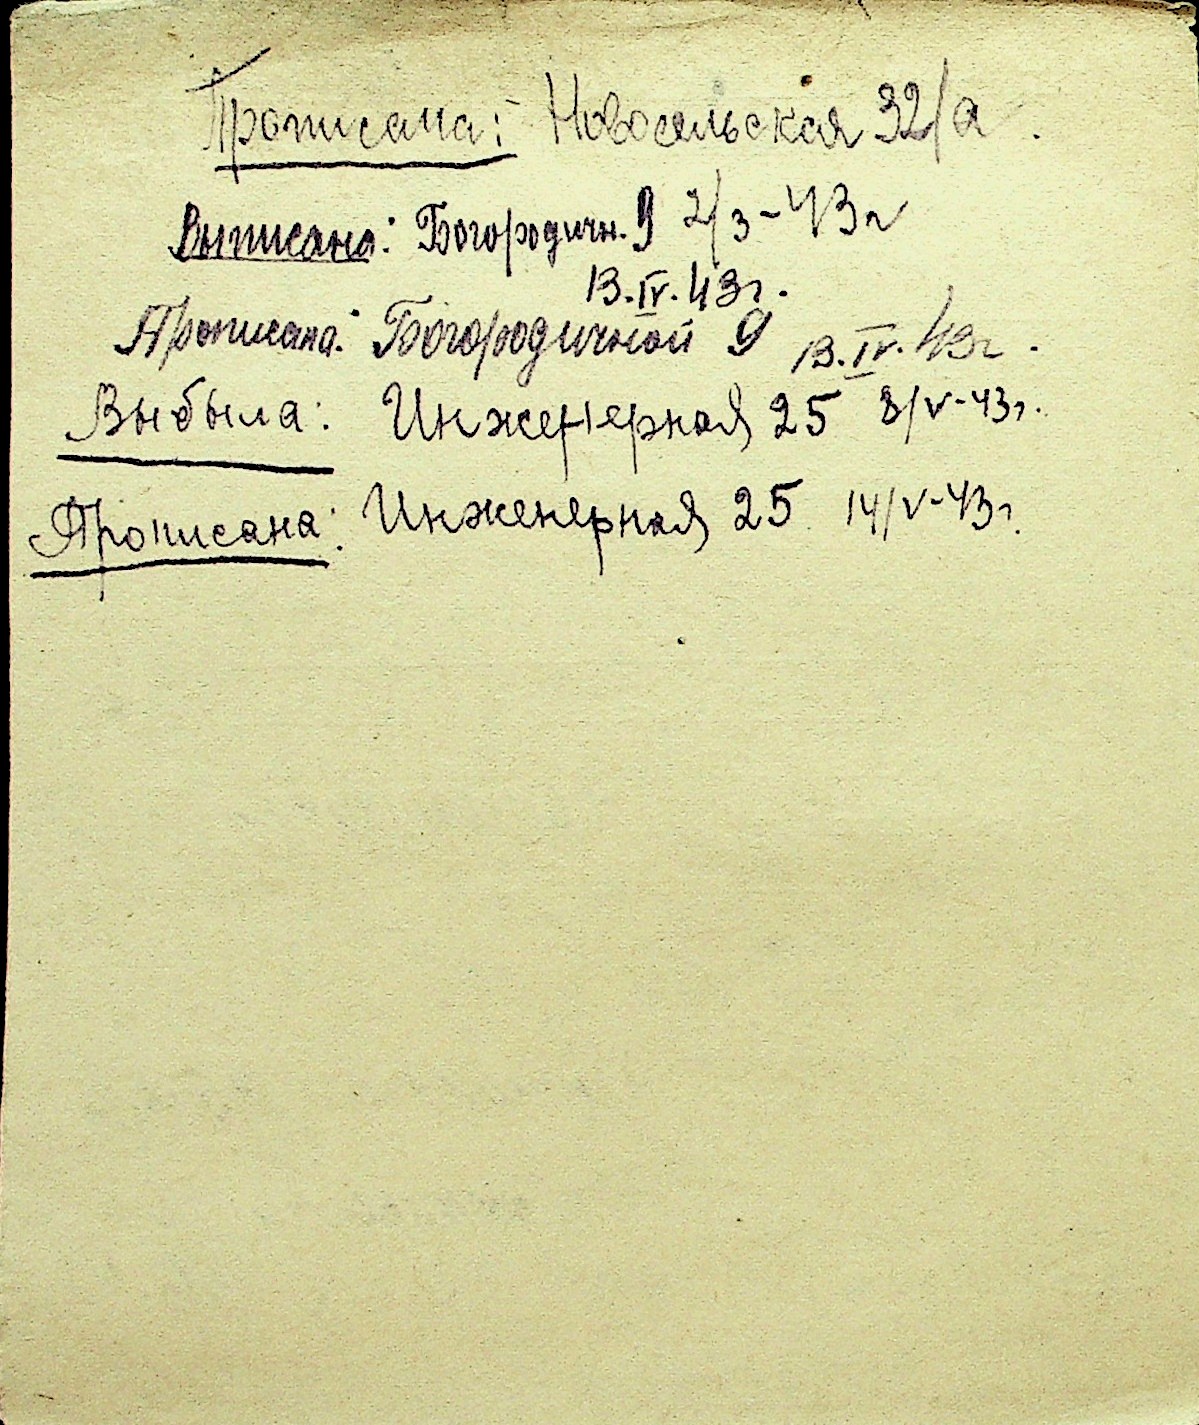 Прописана: Новосельская 32/а.
Выписана: Богородичн. 9 2/3-43г
13.IV.43г.
Прописана: Богородичной 9 13.IV.43г.
Выбыла: Инженерная 25 8/V-43г.
Прописана: Инженерная 25 14/V-43г.